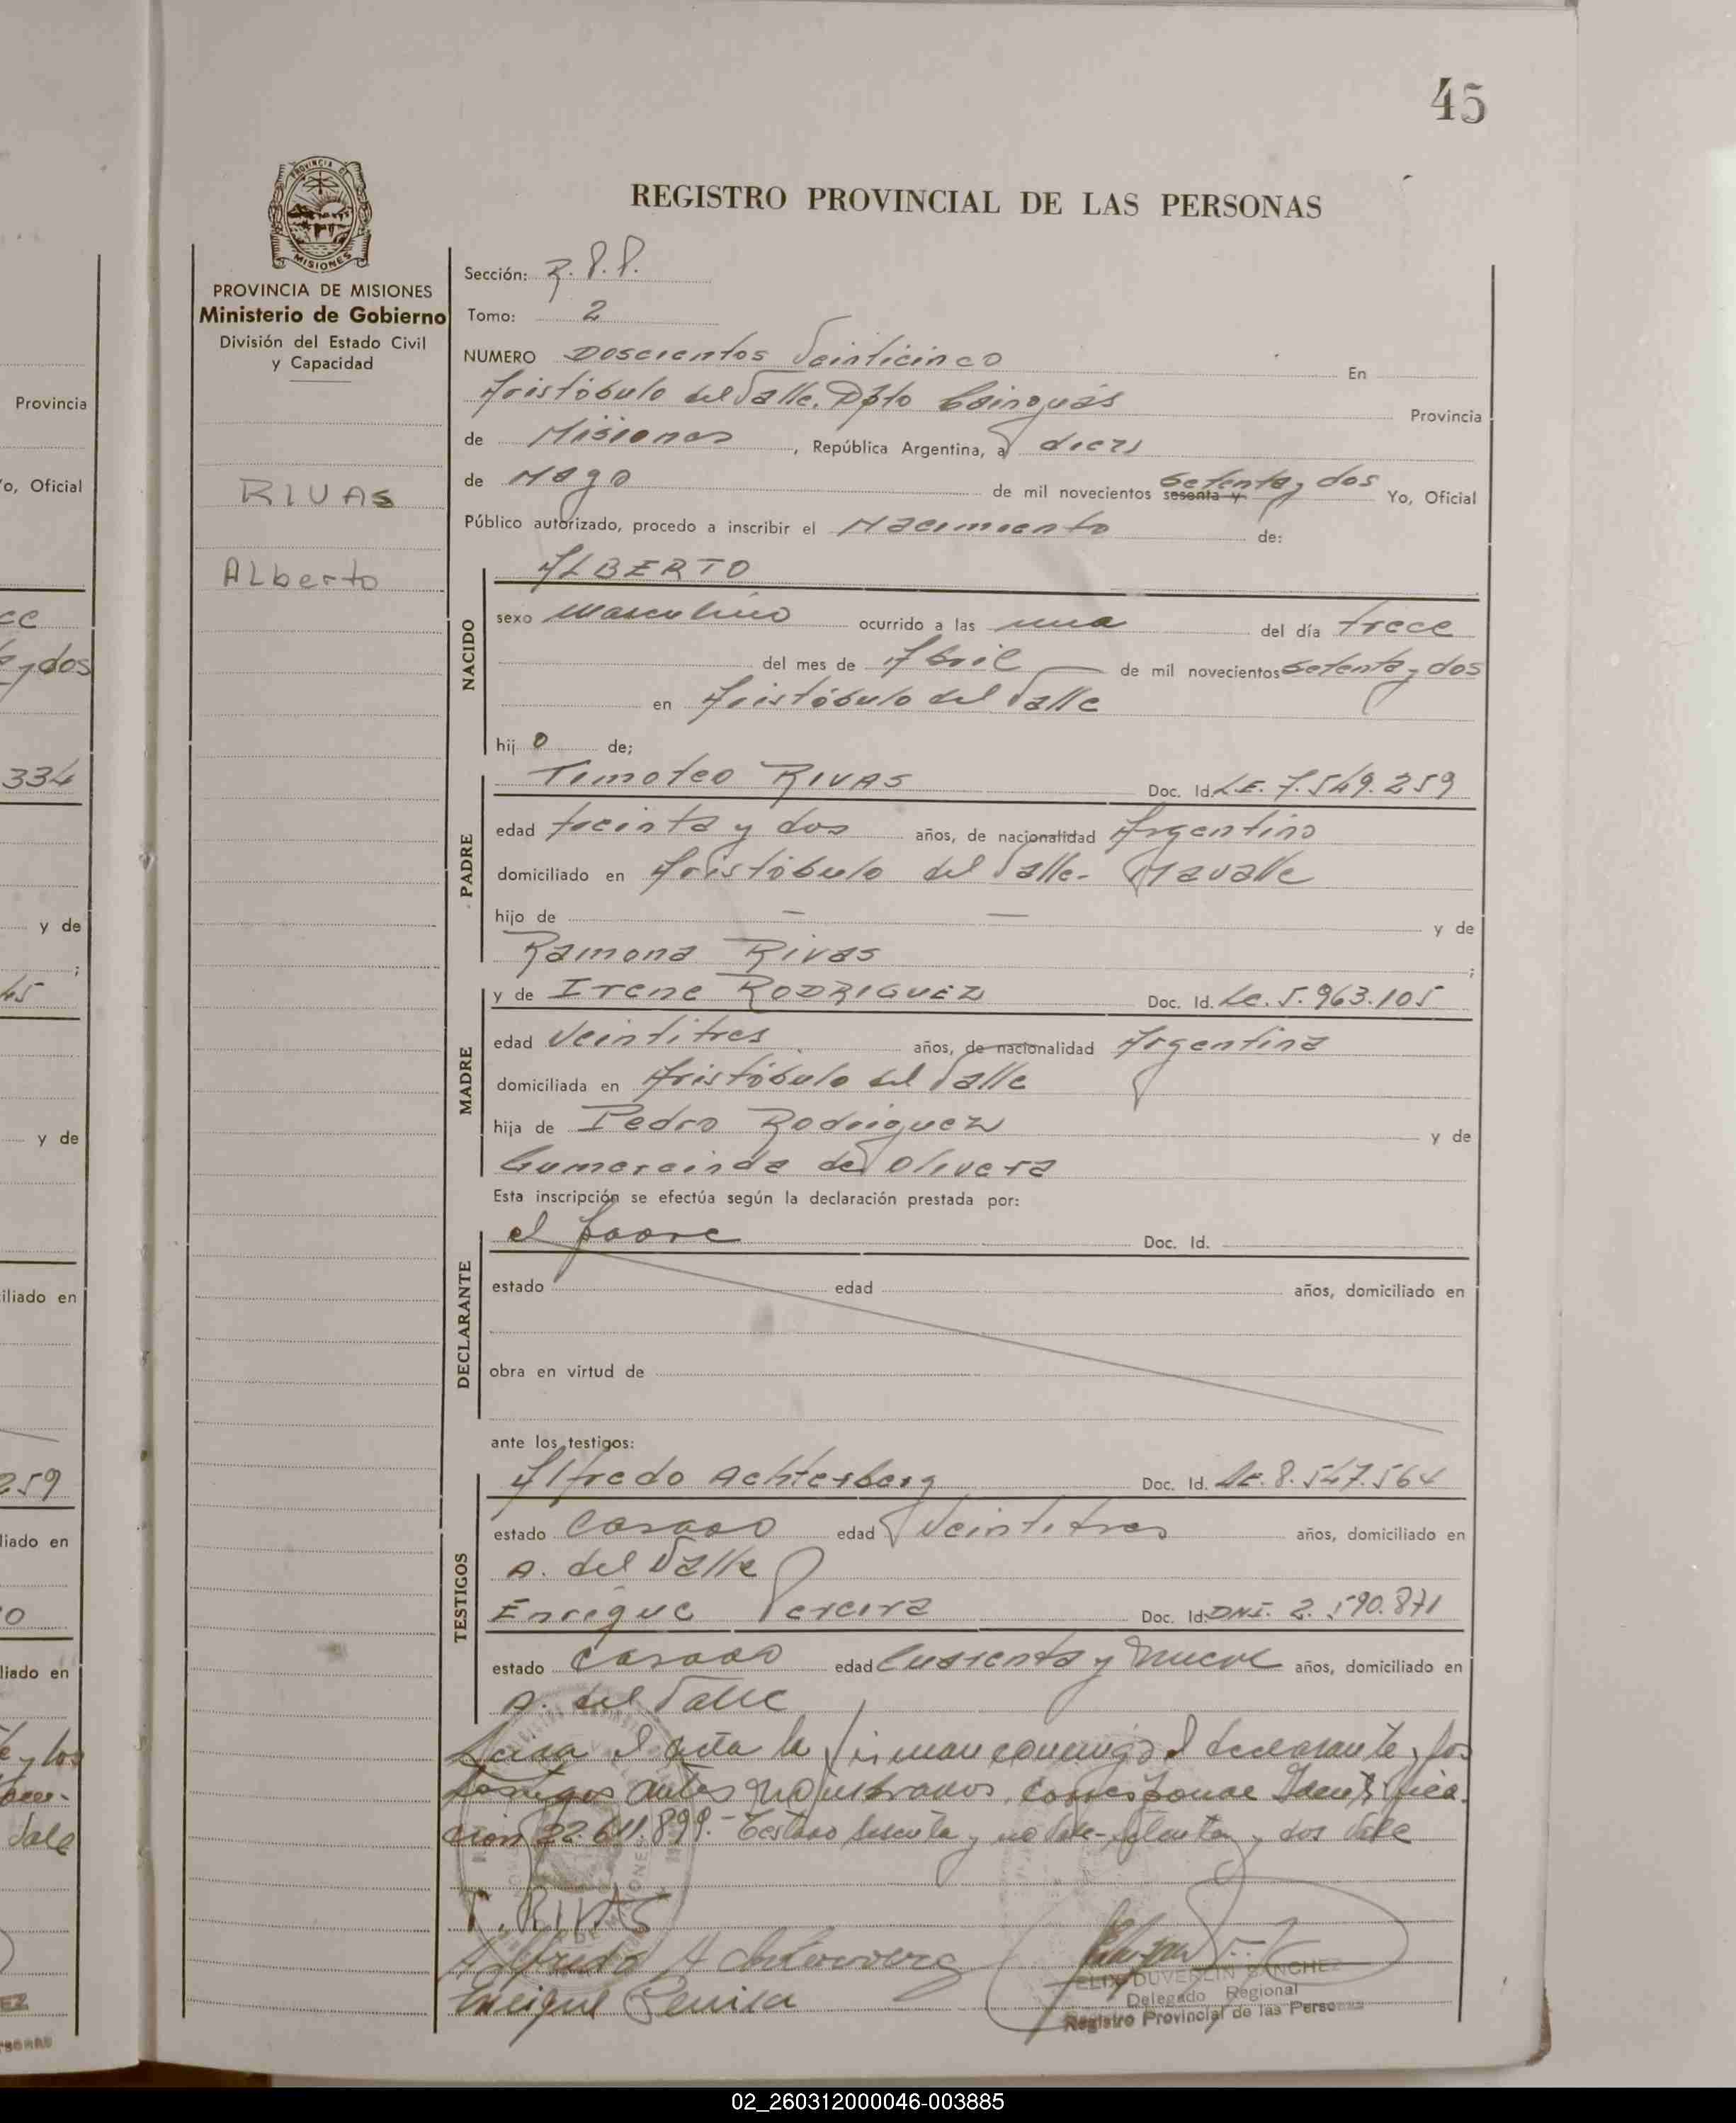 45
REGISTRO PROVINCIAL DE LAS PERSONAS
PROVINCIA DE MISIONES
Ministerio de Gobierno
División del Estado Civil
y Capacidad
RIVAS
Alberto
Sección: R.P.P.
Tomo: 2
NUMERO Doscientos Veinticinco En
Aristóbulo del Valle. Dpto Cainguás Provincia
de Misiones, República Argentina, a diez
de Mayo de mil novecientos sesenta y Setenta y dos Yo, Oficial
Público autorizado, procedo a inscribir el Nacimiento de:
NACIDO
ALBERTO
sexo masculino ocurrido a las una del día trece
del mes de Abril de mil novecientos Setenta y dos
en Aristóbulo del Valle
hij o de;
PADRE
Timoteo RIVAS Doc. Id. L.E. 7.549.259
edad treinta y dos años, de nacionalidad Argentino
domiciliado en Aristóbulo del Valle-
hijo de — — y de
Ramona Rivas ;
MADRE
y de Irene RODRIGUEZ Doc. Id. Lc. 5.963.105
edad Veintitres años, de nacionalidad Argentina
domiciliada en Aristóbulo del Valle
hija de Pedro Rodriguez y de
Gumercinda de Olivera
Esta inscripción se efectúa según la declaración prestada por:
DECLARANTE
el padre Doc. Id.
estado edad años, domiciliado en
obra en virtud de
ante los testigos:
TESTIGOS
Alfredo Achterberg Doc. Id. LE. 8.547.564
estado Casado edad Veintitres años, domiciliado en
A. del Valle
Enrique Pereira Doc. Id. DNI. 2.590.871
estado Casado edad Cuarenta y Nueve años, domiciliado en
A. del Valle
Leida el acta la firman conmigo el declarante y los
testigos antes nombrados. Corresponde Identifica-
ción 22.611.899.- Testado sesenta y no vale- setenta y dos Vale
T. RIVAS
Alfredo Achterberg
Enrique Pereira
FELIX DUVERLIN SANCHEZ
Delegado Regional
Registro Provincial de las Personas
Provincia
Yo, Oficial
y dos
334
y de
;
45
y de
iliado en
259
liado en
liado en
e y los
Vale
EZ
02_260312000046-003885